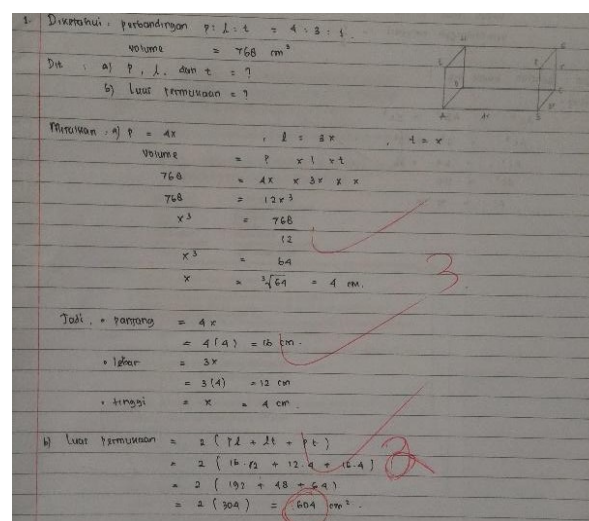 1. Diketahui : perbandingan p : l : t = 4 : 3 : 1
volume = 768 cm³
Dit : a) p, l, dan t = ?
b) Luas permukaan = ?
Misalkan : a) p = 4x , l = 3x , t = x
Volume = p x l x t
768 = 4x x 3x x x
768 = 12x³
x³ = 768
12
x³ = 64
x = ³√64 = 4 cm.
3
Jadi, • panjang = 4x
= 4(4) = 16 cm.
• lebar = 3x
= 3(4) = 12 cm
• tinggi = x = 4 cm.
b) Luas permukaan = 2 ( pl + lt + pt )
= 2 ( 16.12 + 12.4 + 16.4 )
= 2 ( 192 + 48 + 64 )
= 2 ( 304 ) = 604 cm².